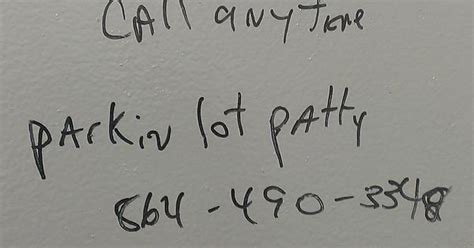 CAll anytime
pArkin lot pAtty
864-490-3348